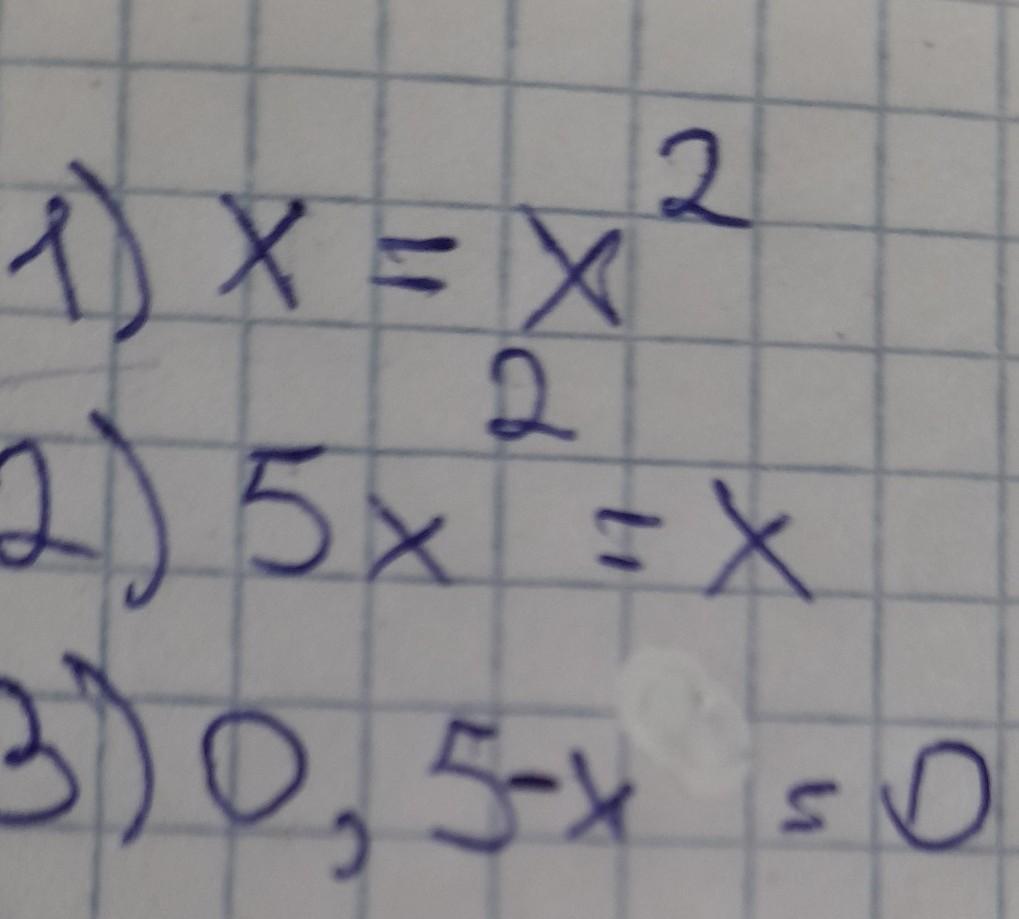 1) x = x²
2) 5x² = x
3) 0,5-x = 0